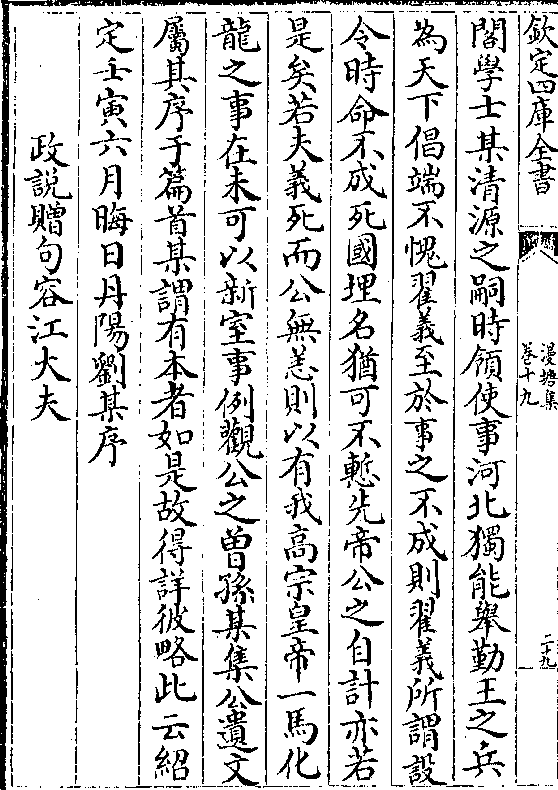 欽定四庫全書
漫塘集
卷十九
二十九
閣學士某清源之嗣時領使事河北獨能舉勤王之兵
為天下倡端不愧翟義至於事之不成則翟義所謂設
令時命不成死國埋名猶可不慙先帝公之自計亦若
是矣若夫義死而公無恙則以有我高宗皇帝一馬化
龍之事在未可以新室事例觀公之曽孫某集公遺文
屬其序于篇首某謂有本者如是故得詳彼略此云紹
定壬寅六月晦日丹陽劉某序
政説贈句容江大夫